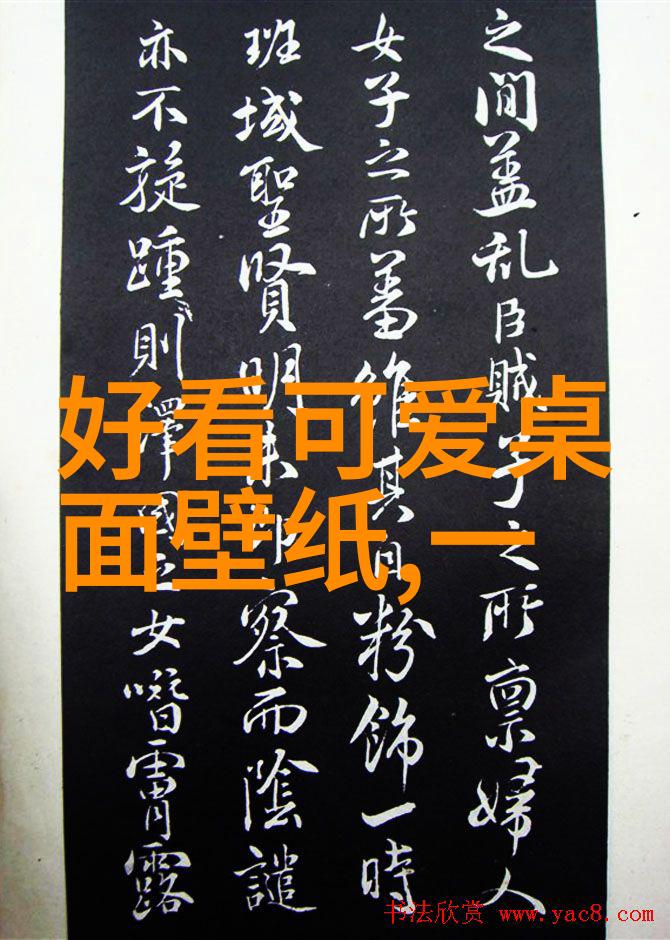 之間蓋乱臣賊子之所禀婦人
女子之所蓄維其日粉飾一時
班域聖賢明察而陰譴
亦不旋踵則澤國之女噆霄露
好看可爱桌
面壁纸,一
书法欣赏 www.yac8.com